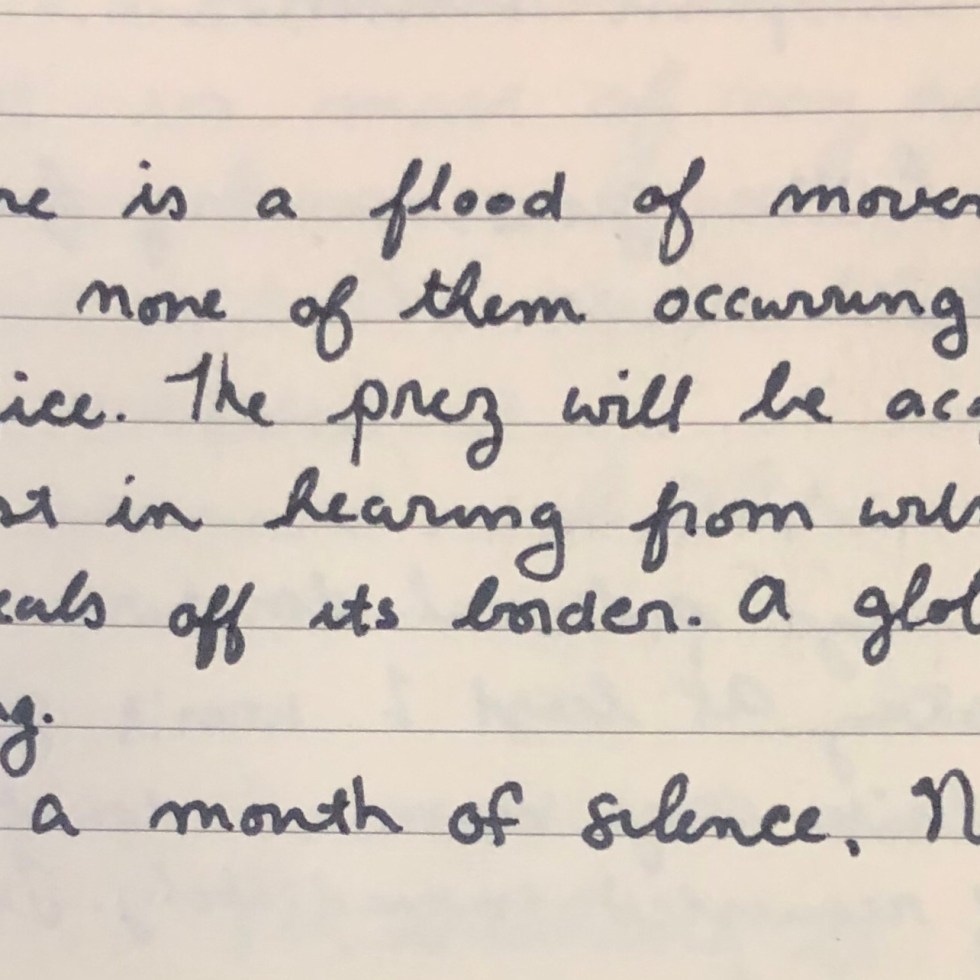 re is a flood of move
none of them occurring
ice. The prez will be ac
st in hearing from
eals off its border. A glo
g.
a month of silence, N